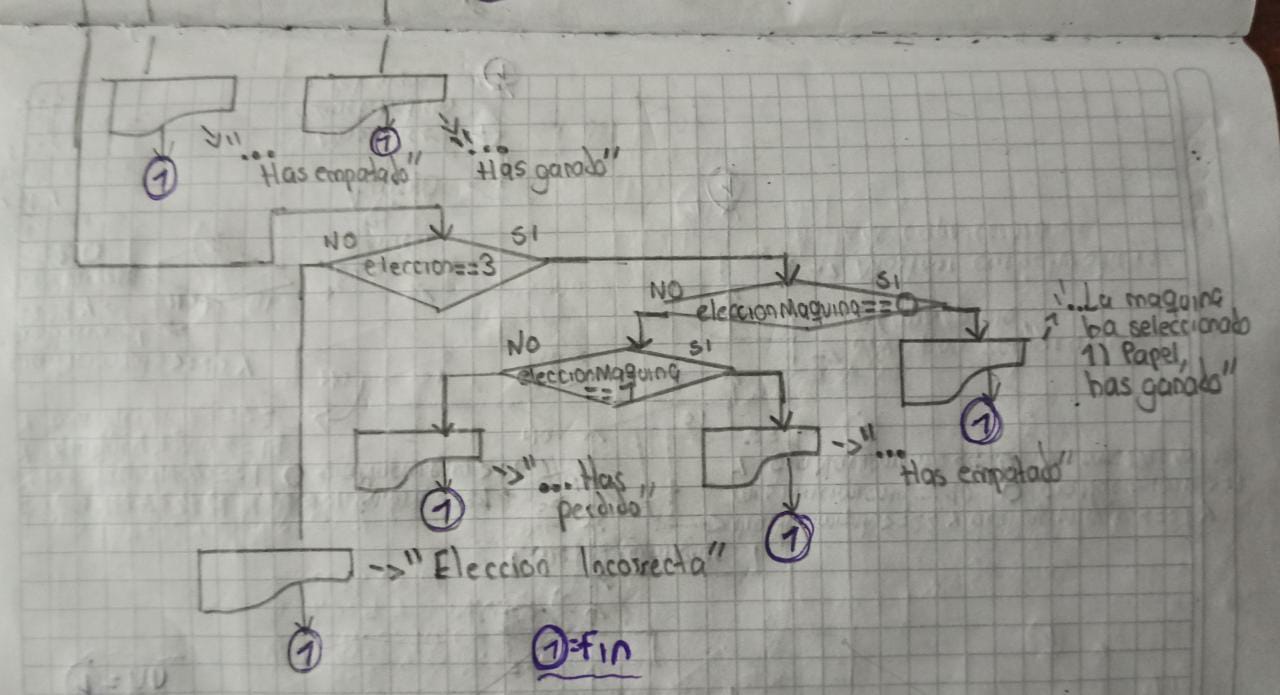 1
"...
Has empatado"
1
"...
Has ganado"
NO
SI
eleccion==3
NO
SI
eleccionMaquina==0
"...La maquina
ha seleccionado
1) Papel,
has ganado"
1
NO
SI
eleccionMaquina
==1
"...Has
perdido"
1
"...
Has empatado"
1
"Elección Incorrecta"
1
1=fin